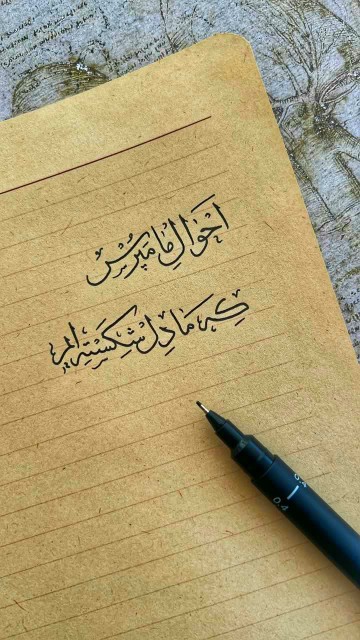 احوالِ ما مپرسْ
که ما دل شکسته ایم
0.4